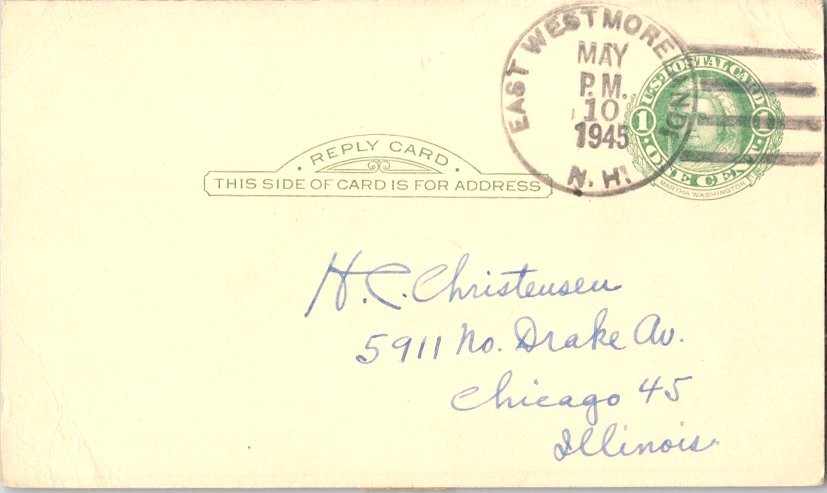 EAST WESTMORELAND
MAY
P.M.
10
1945
N.H.
U.S. POSTAL CARD
1 1
ONE CENT
MARTHA WASHINGTON
REPLY CARD
THIS SIDE OF CARD IS FOR ADDRESS
H. C. Christensen
5911 No. Drake Av.
Chicago 45
Illinois